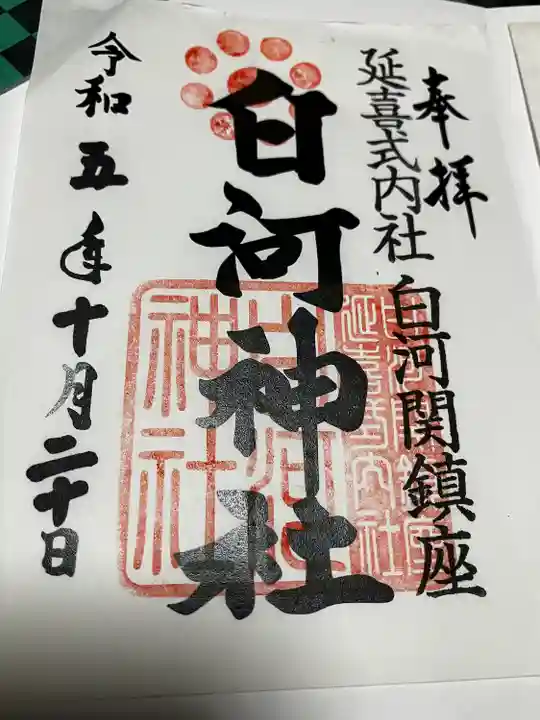 奉拝
延喜式内社 白河関鎮座
白河神社
令和五年十月二十日
白河神社
延喜式内社